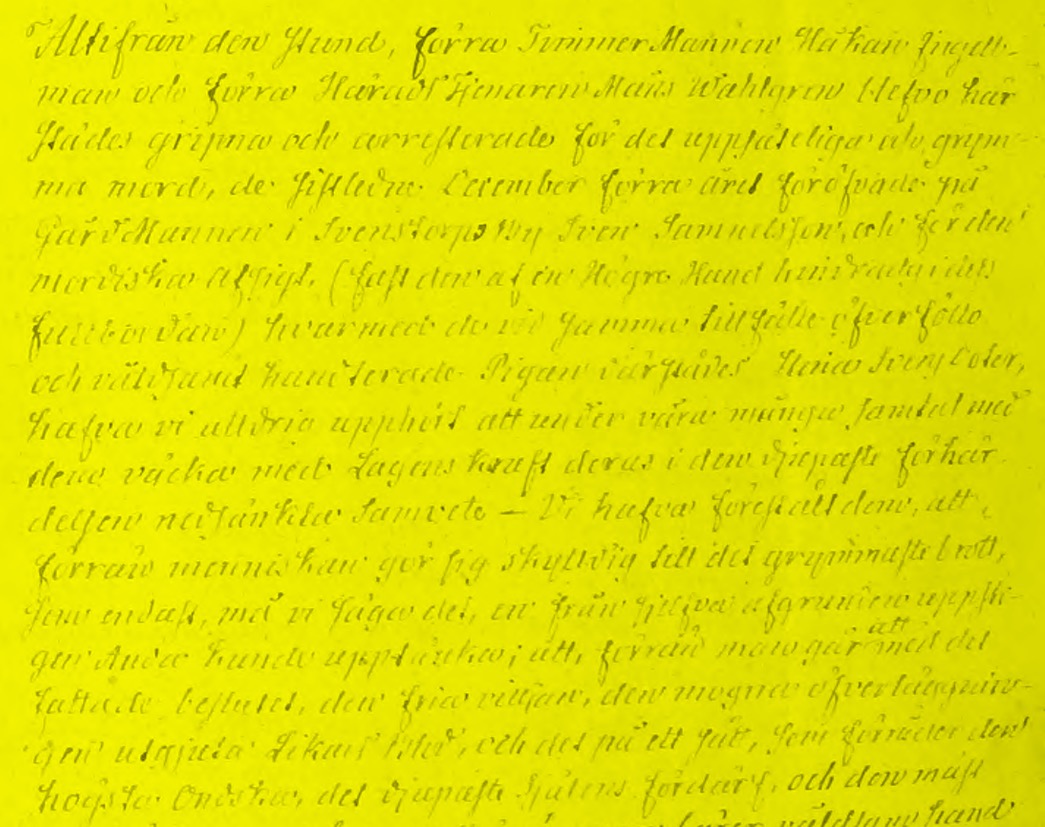 Altifrån den stund, förra TimmerMannen Håkan Engell-
man och förra Härads Tjenaren Måns Wahlgren blefvo här
städes gripna och arresterade för det uppsåteliga och grym-
ma mord, de sistledne December förra året föröfvade på
GårdsMannen i Svenstorps By Sven Samuelsson, och för den
mordiska afsigt, (fast den af en Högre Hand hindrades i dess
fullbordan) hvarmed de vid samma tillfälle öfverföllo
och våldsamt handterade Pigan därstädes Svens Doter,
hafva vi alldrig upphört att under våra många samtal med
dem väcka med Lagens kraft deras i den djupaste förhär
delsen nedsänkta Samvete — Vi hafva föreställt dem, att,
förrän menniskan gör sig skylldig till det grymmaste brott,
som endast, må vi säga det, en från sjelfva afgrunden uppsti-
gen Anda kunde upptänka; att, förrän man går att med det
fattade beslutet, den fria viljan, den mogna öfverläggnin-
gen utgjuta Likars blod, och det på ett sätt, som förråder den
högsta Ondska, det djupaste Själens fördärf, och den mäst
våldsam hand